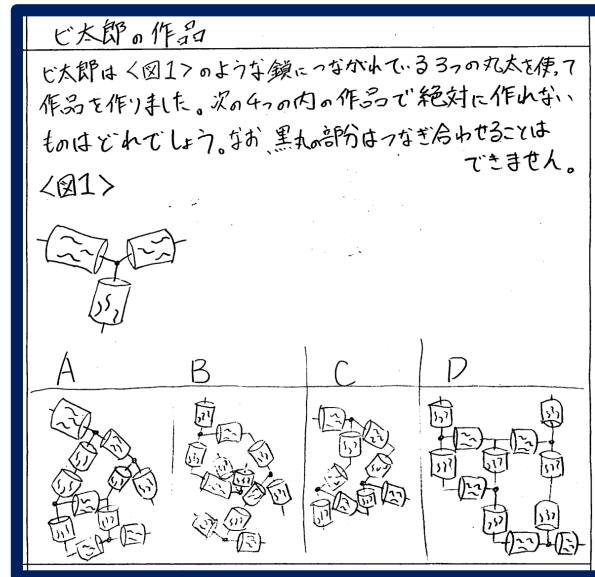 ビ太郎の作品
ビ太郎は〈図1〉のような鎖につながれている3つの丸太を使って
作品を作りました。次の4つの内の作品で絶対に作れない
ものはどれでしょう。なお、黒丸の部分はつなぎ合わせることは
できません。
〈図1〉
A B C D